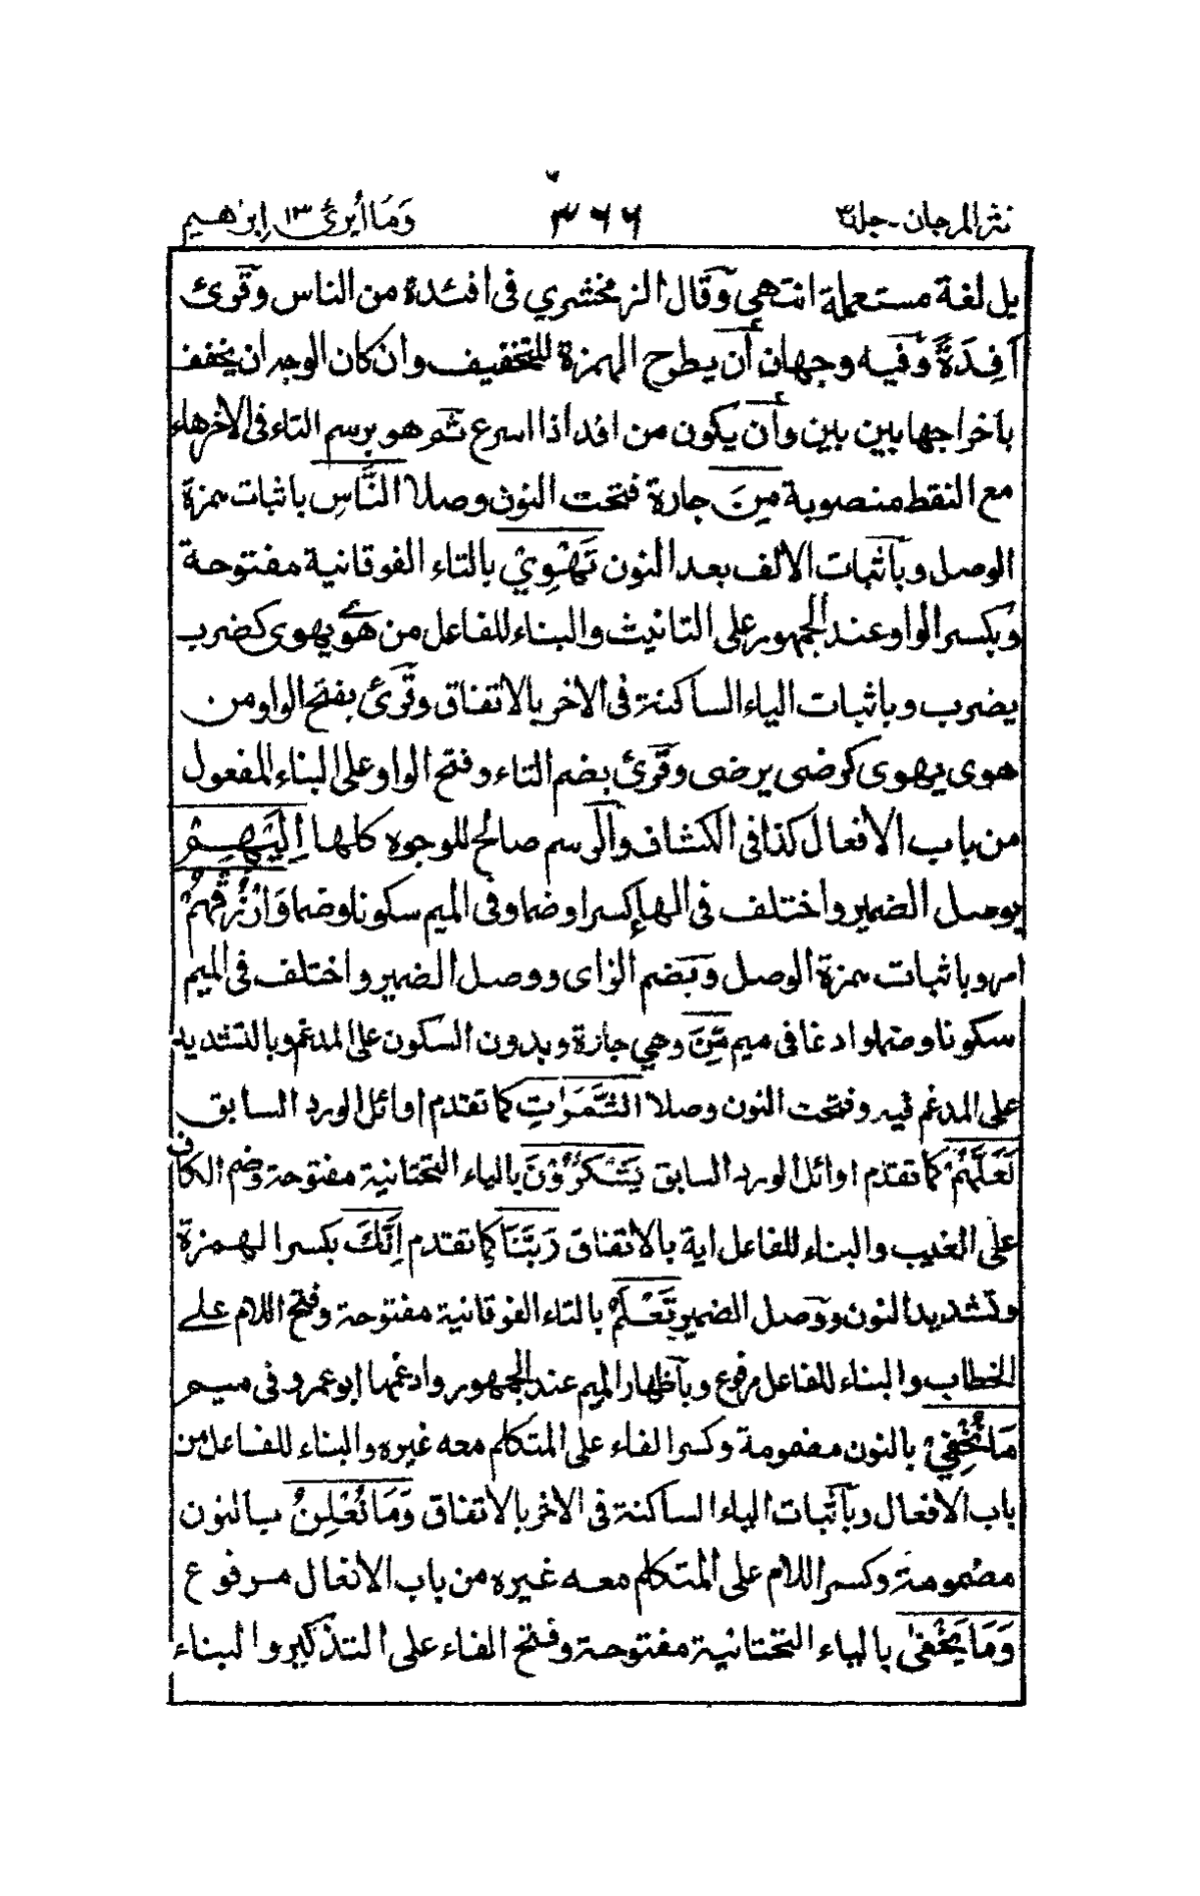 نثر المرجان - جلد ٣
٣٦٦
وَمَا أُبَرِّئُ ١٣ إِبْرٰهيم
بل لغة مستعملة انتهى وقال الزمخشري فى افئدة من الناس وقرئ
اٰفِدَةً وفيه وجهان أن يطرح الهمزة للتخفيف وان كان الوجه ان يخفف
باخراجها بين بين وأن يكون من افد اذا اسرع ثم هو برسم التاء فى الاخرهاء
مع النقط منصوبة مِنَ جارة فتحت النون وصلا النَّاسِ باثبات همزة
الوصل وباثبات الالف بعد النون تَهْوِيْ بالتاء الفوقانية مفتوحة
وبكسر الواو عند الجمهور على التانيث والبناء للفاعل من هوى يهوى كضرب
يضرب وباثبات الياء الساكنة فى الاخر بالاتفاق وقرئ بفتح الواو من
هوى يهوى كرضى يرضى وقرئ بضم التاء وفتح الواو على البناء للمفعول
من باب الافعال كذا فى الكشاف والرسم صالح للوجوه كلها اِلَيْهِمْ
بوصل الضمير واختلف فى الهاء كسرا وضما وفى الميم سكونا وضما وَارْزُقْهُمْ
امر وباثبات همزة الوصل وبضم الزاى ووصل الضمير واختلف فى الميم
سكونا وضما وادغما فى ميم مِّنَ وهي جارة وبدون السكون على المدغم وبالتشديد
على المدغم فيه وفتحت النون وصلا الثَّمَرٰتِ كما تقدم اوائل الورد السابق
لَعَلَّهُمْ كما تقدم اوائل الورد السابق يَشْكُرُوْنَ بالياء التحتانية مفتوحة وضم الكاف
على الغيب والبناء للفاعل اية بالاتفاق رَبَّنَا كما تقدم اِنَّكَ بكسر الهمزة
وتشديد النون ووصل الضمير تَعْلَمُ بالتاء الفوقانية مفتوحة وفتح اللام على
الخطاب والبناء للفاعل مرفوع وباظهار الميم عند الجمهور وادغمها ابو عمرو فى ميم
مَا نُخْفِيْ بالنون مضمومة وكسر الفاء على المتكلم معه غيره والبناء للفاعل من
باب الافعال وباثبات الياء الساكنة فى الاخر بالاتفاق وَمَا نُعْلِنُ بالنون
مضمومة وكسر اللام على المتكلم معه غيره من باب الافعال مرفوع
وَمَا يَخْفٰى بالياء التحتانية مفتوحة وفتح الفاء على التذكير والبناء